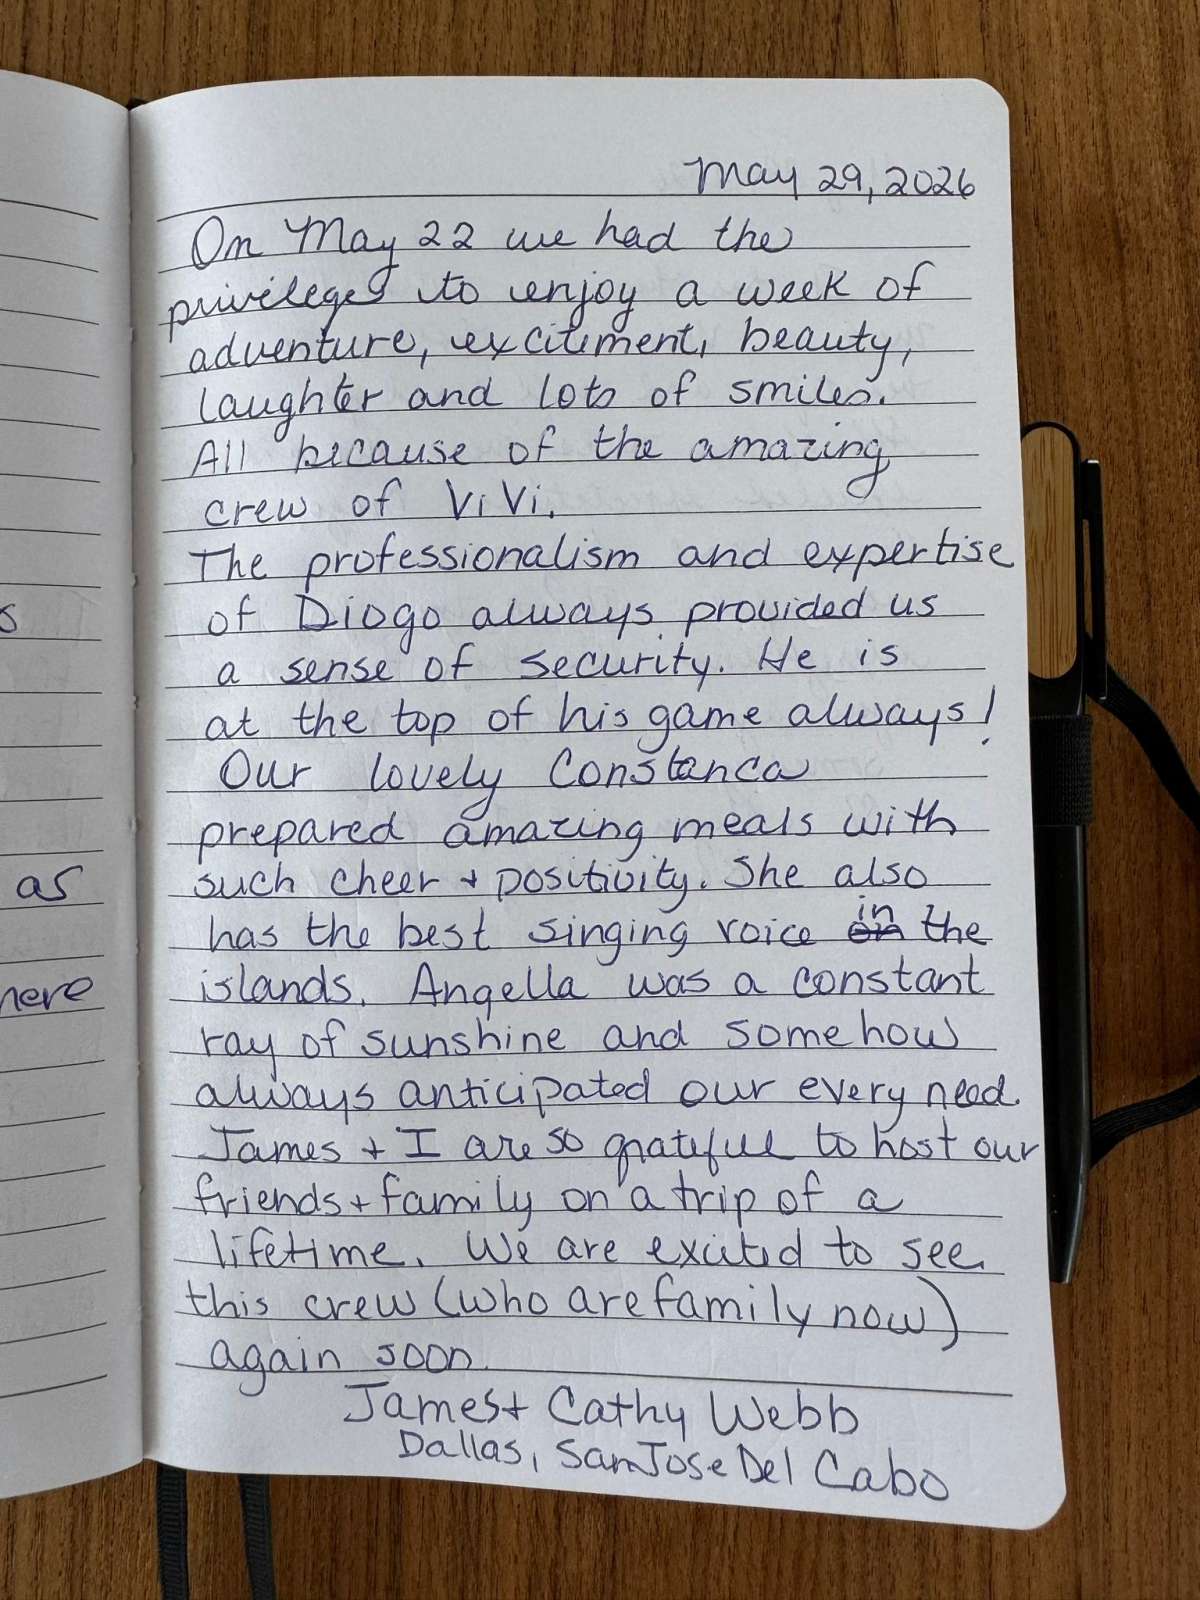 May 29, 2026
On May 22 we had the
privileges to enjoy a week of
adventure, excitement, beauty,
laughter and lots of smiles.
All because of the amazing
crew of ViVi.
The professionalism and expertise
of Diogo always provided us
a sense of security. He is
at the top of his game always!
Our lovely Constanca
prepared amazing meals with
such cheer + positivity. She also
has the best singing voice in the
islands. Angella was a constant
ray of sunshine and somehow
always anticipated our every need.
James + I are so grateful to host our
friends + family on a trip of a
lifetime. We are excited to see
this crew (who are family now)
again soon.
James + Cathy Webb
Dallas, San Jose Del Cabo
as